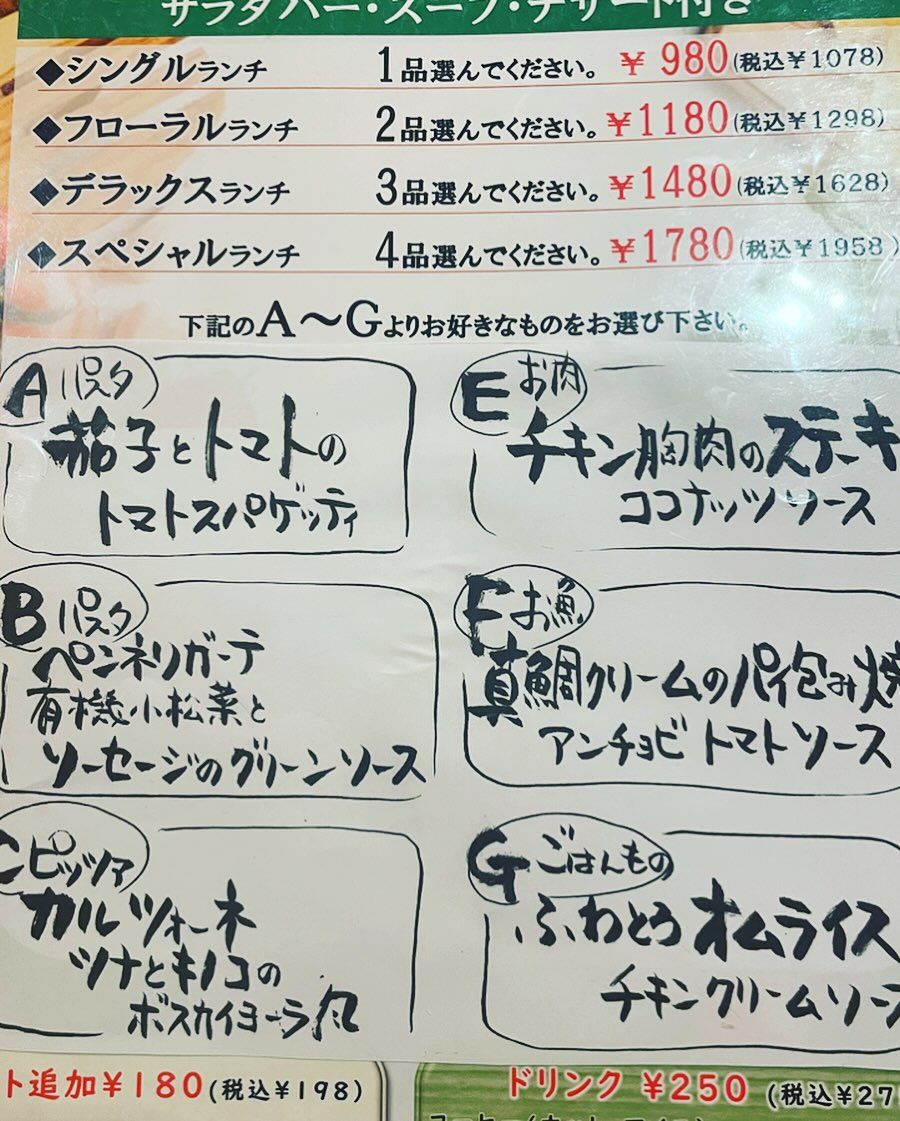 サラダバー・スープ・デザート付き
◆シングルランチ 1品選んでください。 ¥980(税込¥1078)
◆フローラルランチ 2品選んでください。 ¥1180(税込¥1298)
◆デラックスランチ 3品選んでください。 ¥1480(税込¥1628)
◆スペシャルランチ 4品選んでください。 ¥1780(税込¥1958)
下記のA～Gよりお好きなものをお選び下さい。
A パスタ
茄子とトマトの
トマトスパゲッティ
B パスタ
ペンネリガーテ
有機小松菜と
ソーセージのグリーンソース
C ピッツァ
カルツォーネ
ツナとキノコの
ボスカイヨーラ風
E お肉
チキン胸肉のステーキ
ココナッツソース
F お魚
真鯛クリームのパイ包み焼
アンチョビトマトソース
G ごはんもの
ふわとろオムライス
チキンクリームソー
ト追加¥180(税込¥198)
ドリンク ¥250 (税込¥27